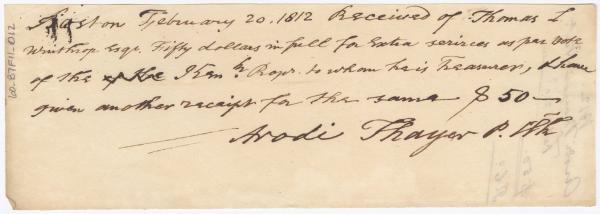 Boston February 20. 1812 Received of Thomas L
Winthrop Esqr. Fifty dollars in full for Extra services as par vote
of the Ken. Propr. to whom he is Treasurer, & have
given another receipt for the same $ 50—
Arodi Thayer
60-87F11-012